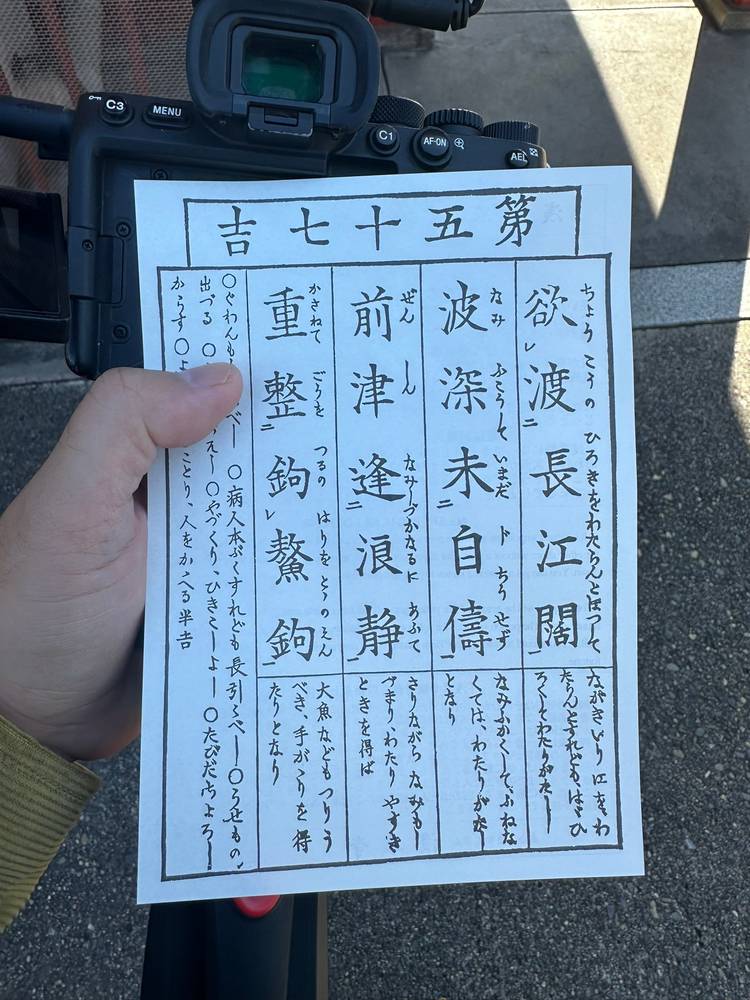 第五十七吉
ちょうこうのひろきをわたらんとほつして
欲レ渡二長江闊一
ながきいり江をわ
たらんとすれども、はゞひ
ろくしてわたりがたし
なみ ふこうして いまだ ト ちう せず
波深未二自儔一
なみふかくして、ふねな
くては、わたりがたし
となり
ぜん しん なみしづかなるに あふて
前津逢二浪静一
さりながら なみもし
づまり、わたり やすき
ときを得ば
かさねて ごうを つるの はりを とゝのえん
重整二鉤レ鰲鉤一
大魚などもつりう
べき、手がゝりを得
たりとなり
○ぐわんも べし ○病人本ぶくすれども長引くべし○うせもの、
出づる ○ し ○やづくり、ひきこしよし ○たびだちよろし
からず ○よ ことり、人をかゝへる半吉
C3
MENU
C1
AF-ON
AEL